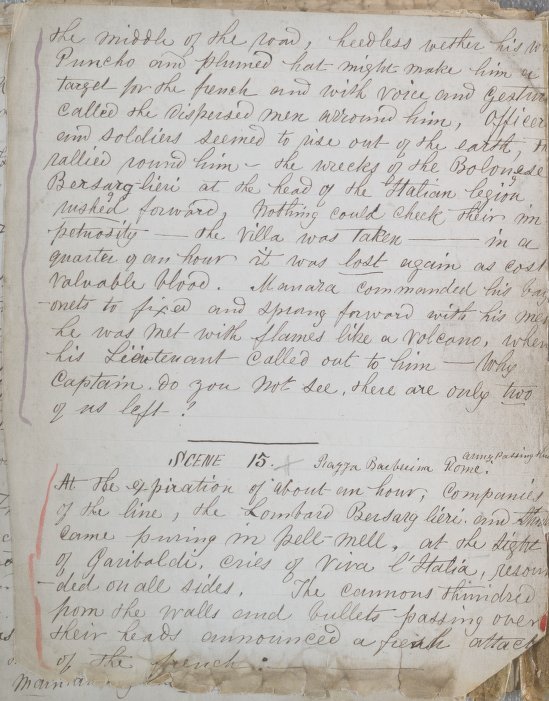 the middle of the road, heedless wether his w
Puncho and plumed hat might make him a
target for the french and with voice and gestur
called the dispersed men arround him, Officer
and soldiers seemed to rise out of the earth,
rallied round him - the wrecks of the Bolonese
Bersarg-lieri at the head of the Italian legion
rushed forward, Nothing could check their im
petuosity — the Villa was taken — in a
quarter of an hour it was lost again as cost
Valuable blood. Manara commanded his bay
-onets to fixed and sprang forward with his men
he was met with flames like a Volcano, when
his Lieutenant called out to him — Why
Captain. do you Not see, there are only two
of us left ?
SCENE 15. Piazza Barbirina Rome.
Army Passing
At the expiration of about an hour, Companies
of the line, the Lombard Bersarg lieri. and
came puring in pell-mell, at the sight
of Garibaldi. cries of Viva l'Italia, resoun
-ded on all sides. The cannons thundred
from the walls and bullets passing over
their heads announced a fresh attack
of the french.